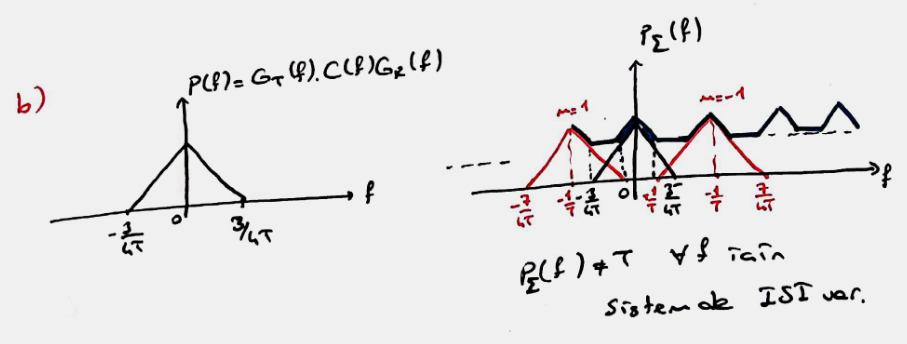 b)
P(f)= G_T(f).C(f)G_R(f)
f
-3/4T 0 3/4T
P_Σ(f)
m=1 m=-1
f
-7/4T -1/T -3/4T 0 1/T 3/4T -1/T 7/4T
P_Σ(f) ≠ T ∀f için
sistemde ISI var.